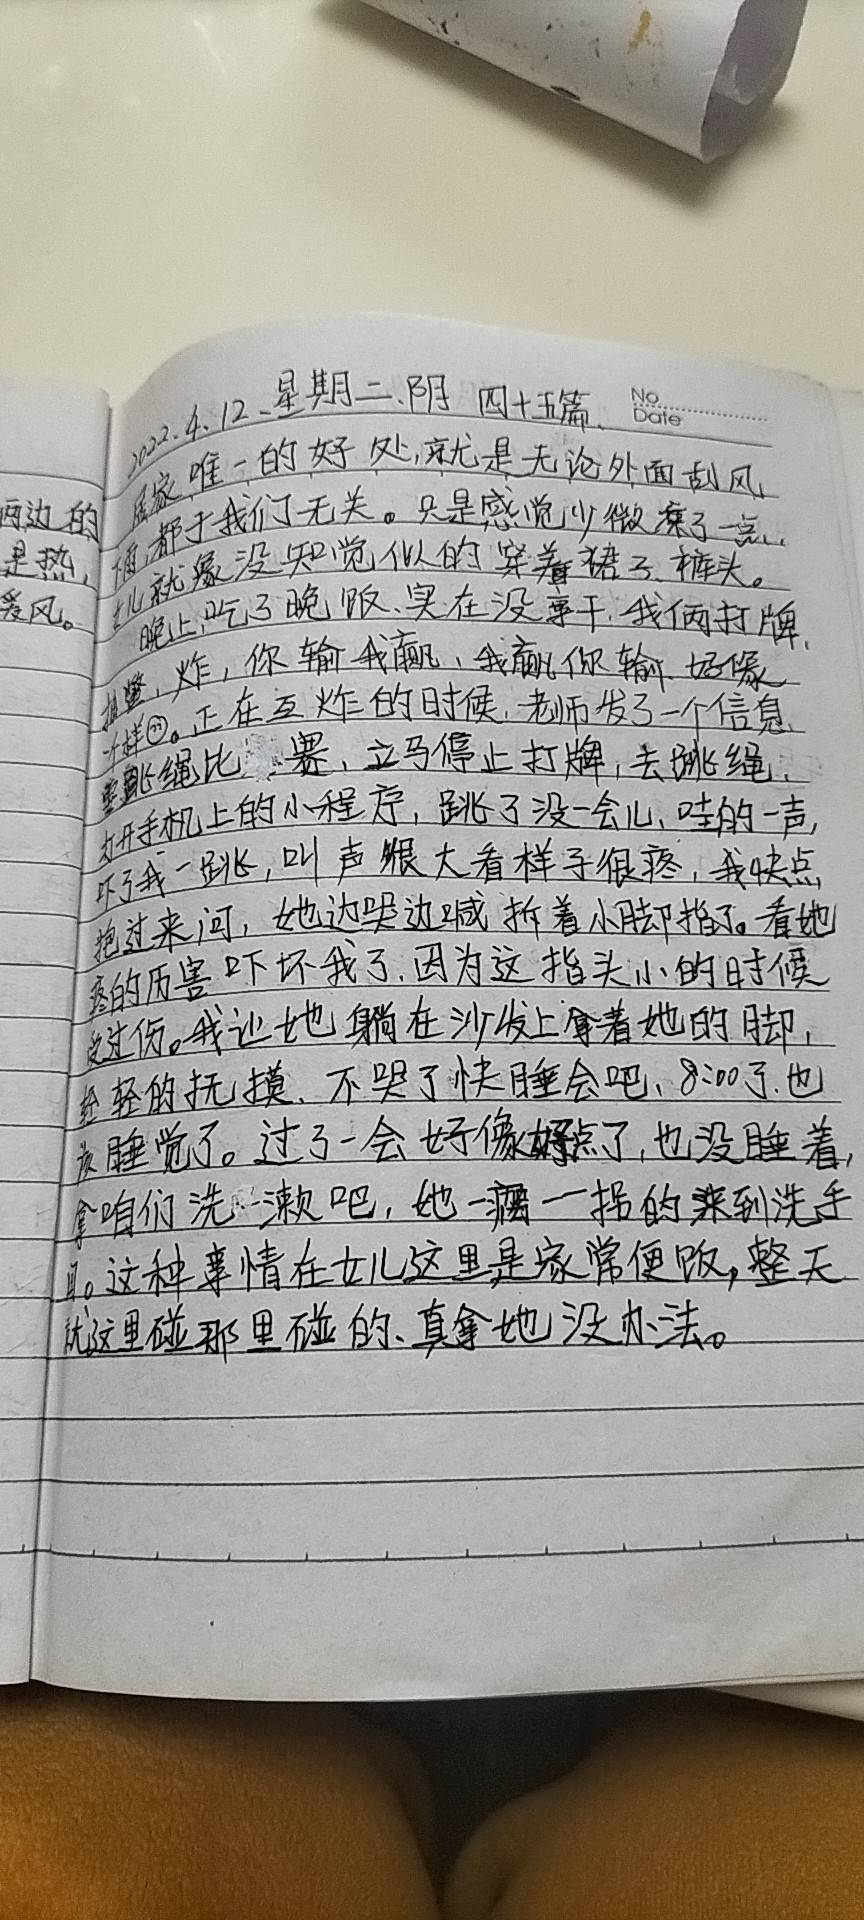 两边的
是热,
爱风。
No
Date
2022.4.12、星期二、阴 四十五篇、
居家唯一的好处,就是无论外面刮风
下雨,都于我们无关。只是感觉少微凉了一点、
女儿就像没知觉似的穿着裙子、裤头。
晚上,吃了晚饭、实在没事干,我俩打牌,
炸,你输我赢、我赢你输、好像
样。正在互炸的时候,老师发了一个信息
要跳绳比赛、立马停止打牌,去跳绳、
打开手机上的小程序,跳了没一会儿、哇的一声,
吓了我一跳,叫声很大看样子很疼,我快点
抱过来问,她边哭边喊折着小脚指了。看她
疼的厉害吓坏我了.因为这指头小的时候
受过伤。我让她躺在沙发上拿着她的脚,
轻轻的抚摸、不哭了快睡会吧、8:00了.也
该睡觉了。过了一会好像好点了,也没睡着,
拿咱们洗漱吧,她一瘸一拐的来到洗手
间。这种事情在女儿这里是家常便饭,整天
就这里碰那里碰的、真拿她没办法。